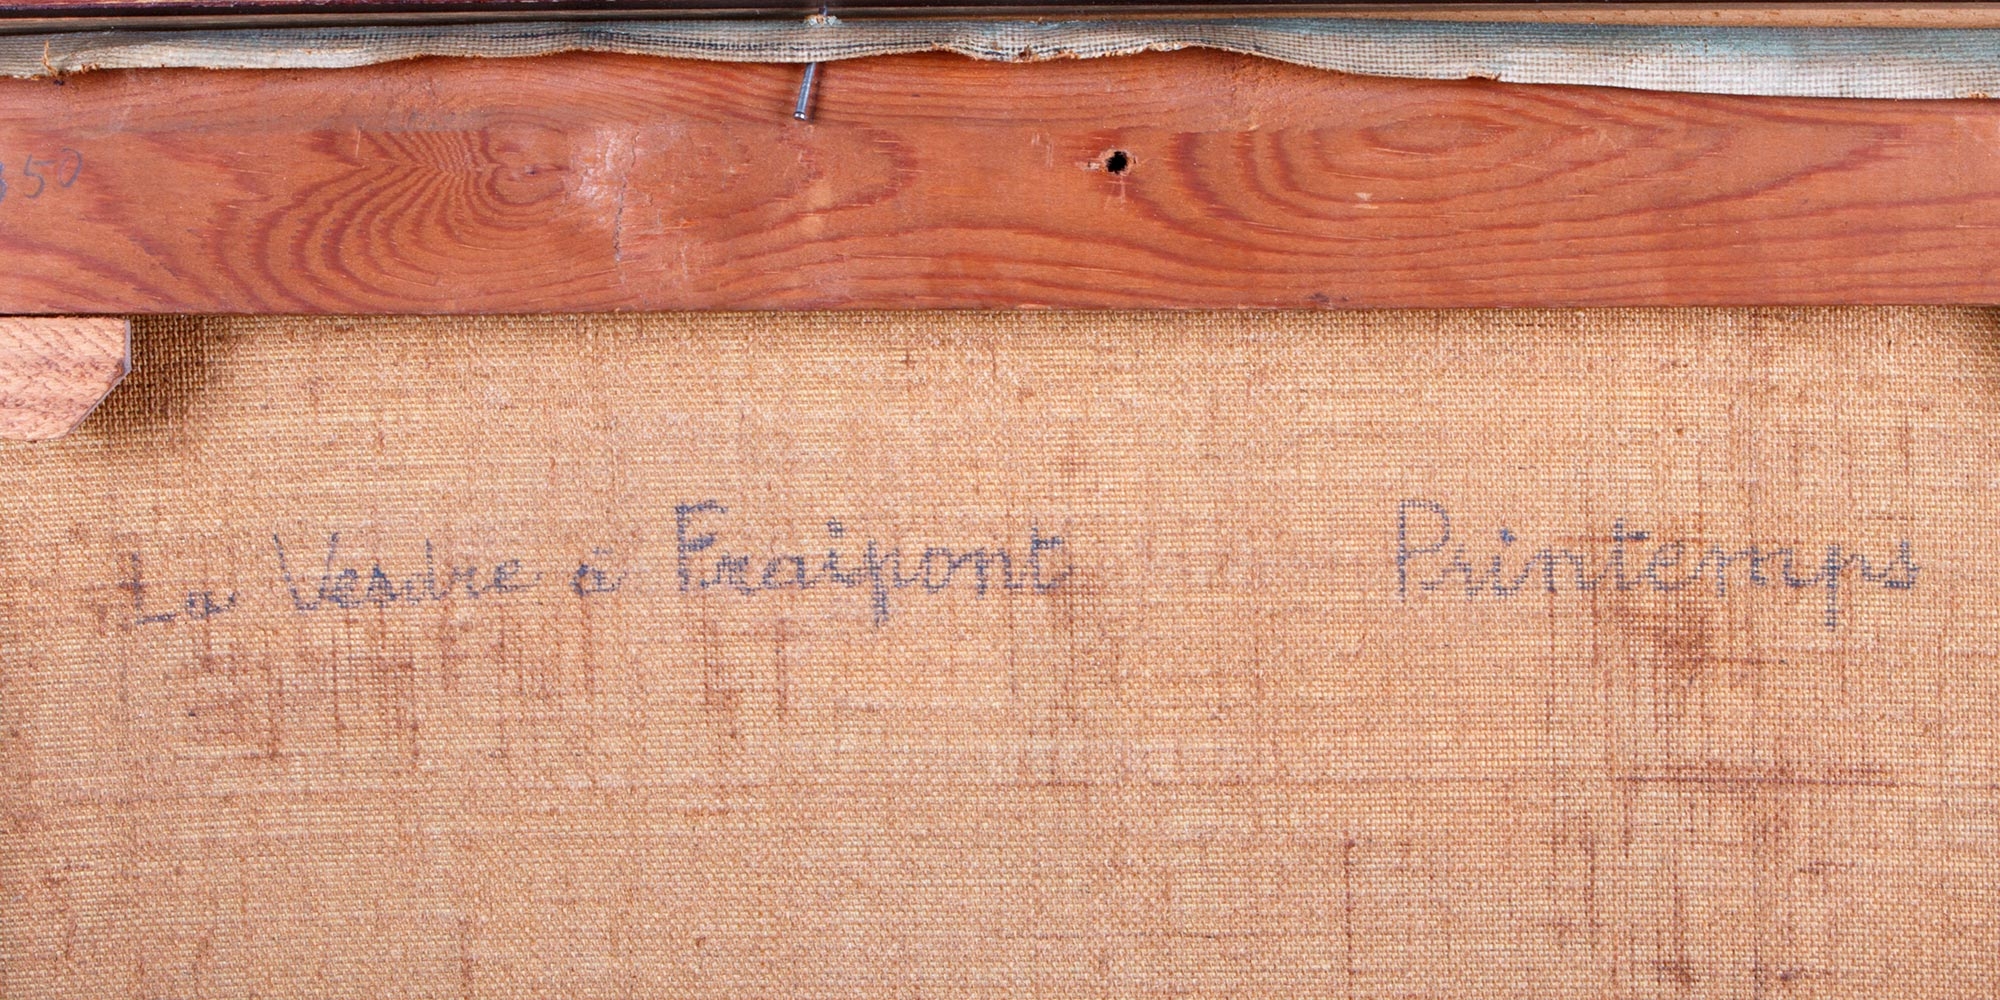 50
La Vesdre à Fraipont Printemps